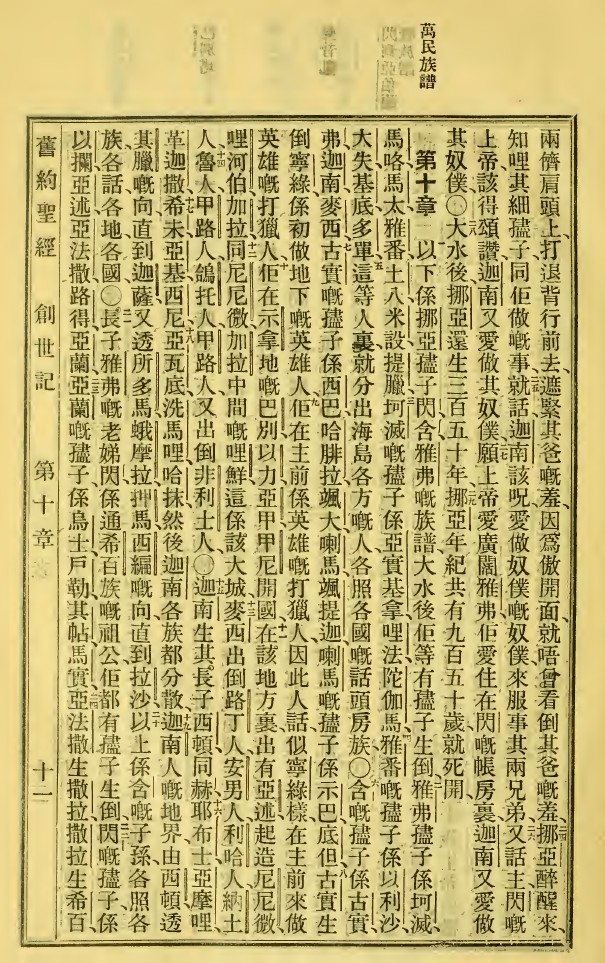 萬民族譜
兩儕肩頭上打退背行前去遮緊其爸嘅羞因爲傲開面就唔會看倒其爸嘅羞挪亞醉醒來
知哩其細孻子同佢做嘅事就話迦南該呪愛做奴僕嘅奴僕來服事其兩兄弟又話主閃嘅
上帝該得頌讚迦南又愛做其奴僕願上帝愛廣闊雅弗佢愛住在閃嘅帳房裏迦南又愛做
其奴僕〇大水後挪亞還生三百五十年挪亞年紀共有九百五十歲就死開
第十章 以下係挪亞孻子閃含雅弗嘅族譜大水後佢等有孻子生倒雅弗孻子係坷滅
馬咯馬太雅番土八米設提臘坷滅嘅孻子係亞實基拿哩法陀伽馬雅番嘅孻子係以利沙
大失基底多單這等人裏就分出海島各方嘅人各照各國嘅話頭房族〇含嘅孻子係古實
弗迦南麥西古實嘅孻子係西巴哈腓拉颯大喇馬颯提迦喇馬嘅孻子係示巴底但古實生
倒寧綠係初做地下嘅英雄人佢在主前係英雄嘅打獵人因此人話似寧綠樣在主前來做
英雄嘅打獵人佢在示拿地嘅巴別以力亞甲甲尼開國在該地方裏出有亞述起造尼尼微
哩河伯加拉同尼尼微加拉中間嘅哩鮮這係該大城麥西出倒路丁人安男人利哈人納土
人魯人甲路人鴿托人甲路人又出倒非利士人〇迦南生其長子西頓同赫耶布士亞摩哩
革迦撒希未亞基西尼亞瓦底洗馬哩哈抹然後迦南各族都分散迦南人嘅地界由西頓透
其臘嘅向直到迦薩又透所多馬蛾摩拉押馬西編嘅向直到拉沙以上係含嘅子孫各照各
族各話各地各國〇長子雅弗嘅老娣閃係通希百族嘅祖公佢都有孻子生倒閃嘅孻子係
以攔亞述亞法撒路得亞蘭亞蘭嘅孻子係烏士戶勒其帖馬實亞法撒生撒拉撒拉生希百
舊約聖經 創世記 第十章 十一